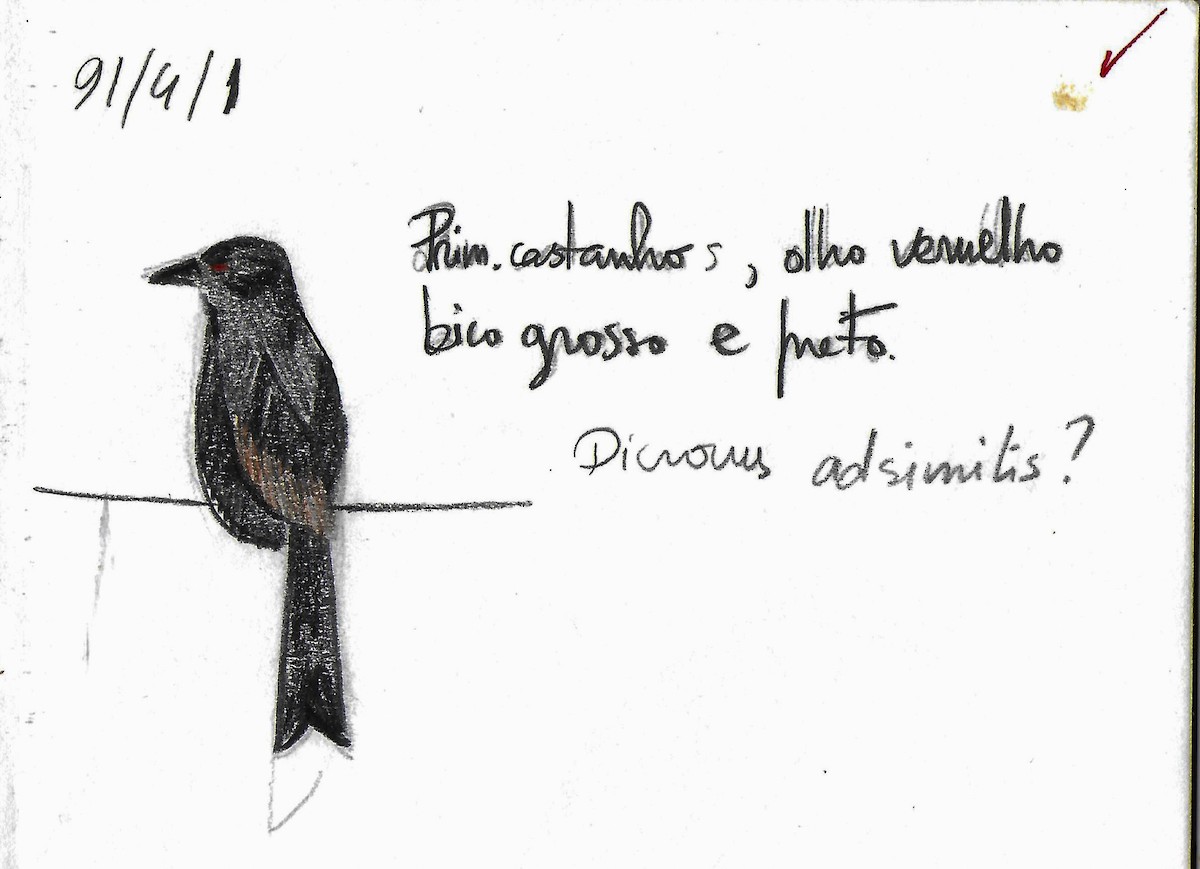 91/4/1
Prim. castanhos, olho vermelho
bico grosso e preto.
Dicrourus adsimilis?